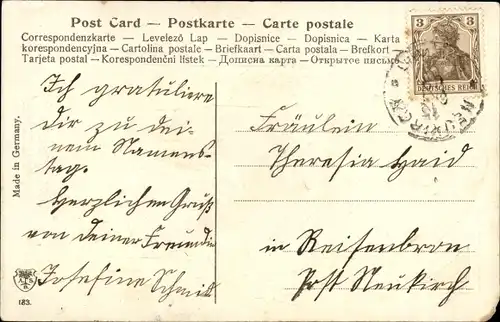 Post Card — Postkarte — Carte postale
Correspondenzkarte — Levelező Lap — Dopisnice — Dopisnica — Karta
korespondencyjna — Cartolina postale — Briefkaart — Carta postala — Brefkort
Tarjeta postal — Korespondenční lístek — Дописна карта — Открытое письмо
3 3
DEUTSCHES REICH
Made in Germany.
Ich gratuliere
Dir zu dei-
nem Namens-
tag.
Herzlichen Gruß
von deiner Freundin
Josefine Schmid
Fräulein
Theresia Haid
in Reisenbron
Post Neukirch
183.